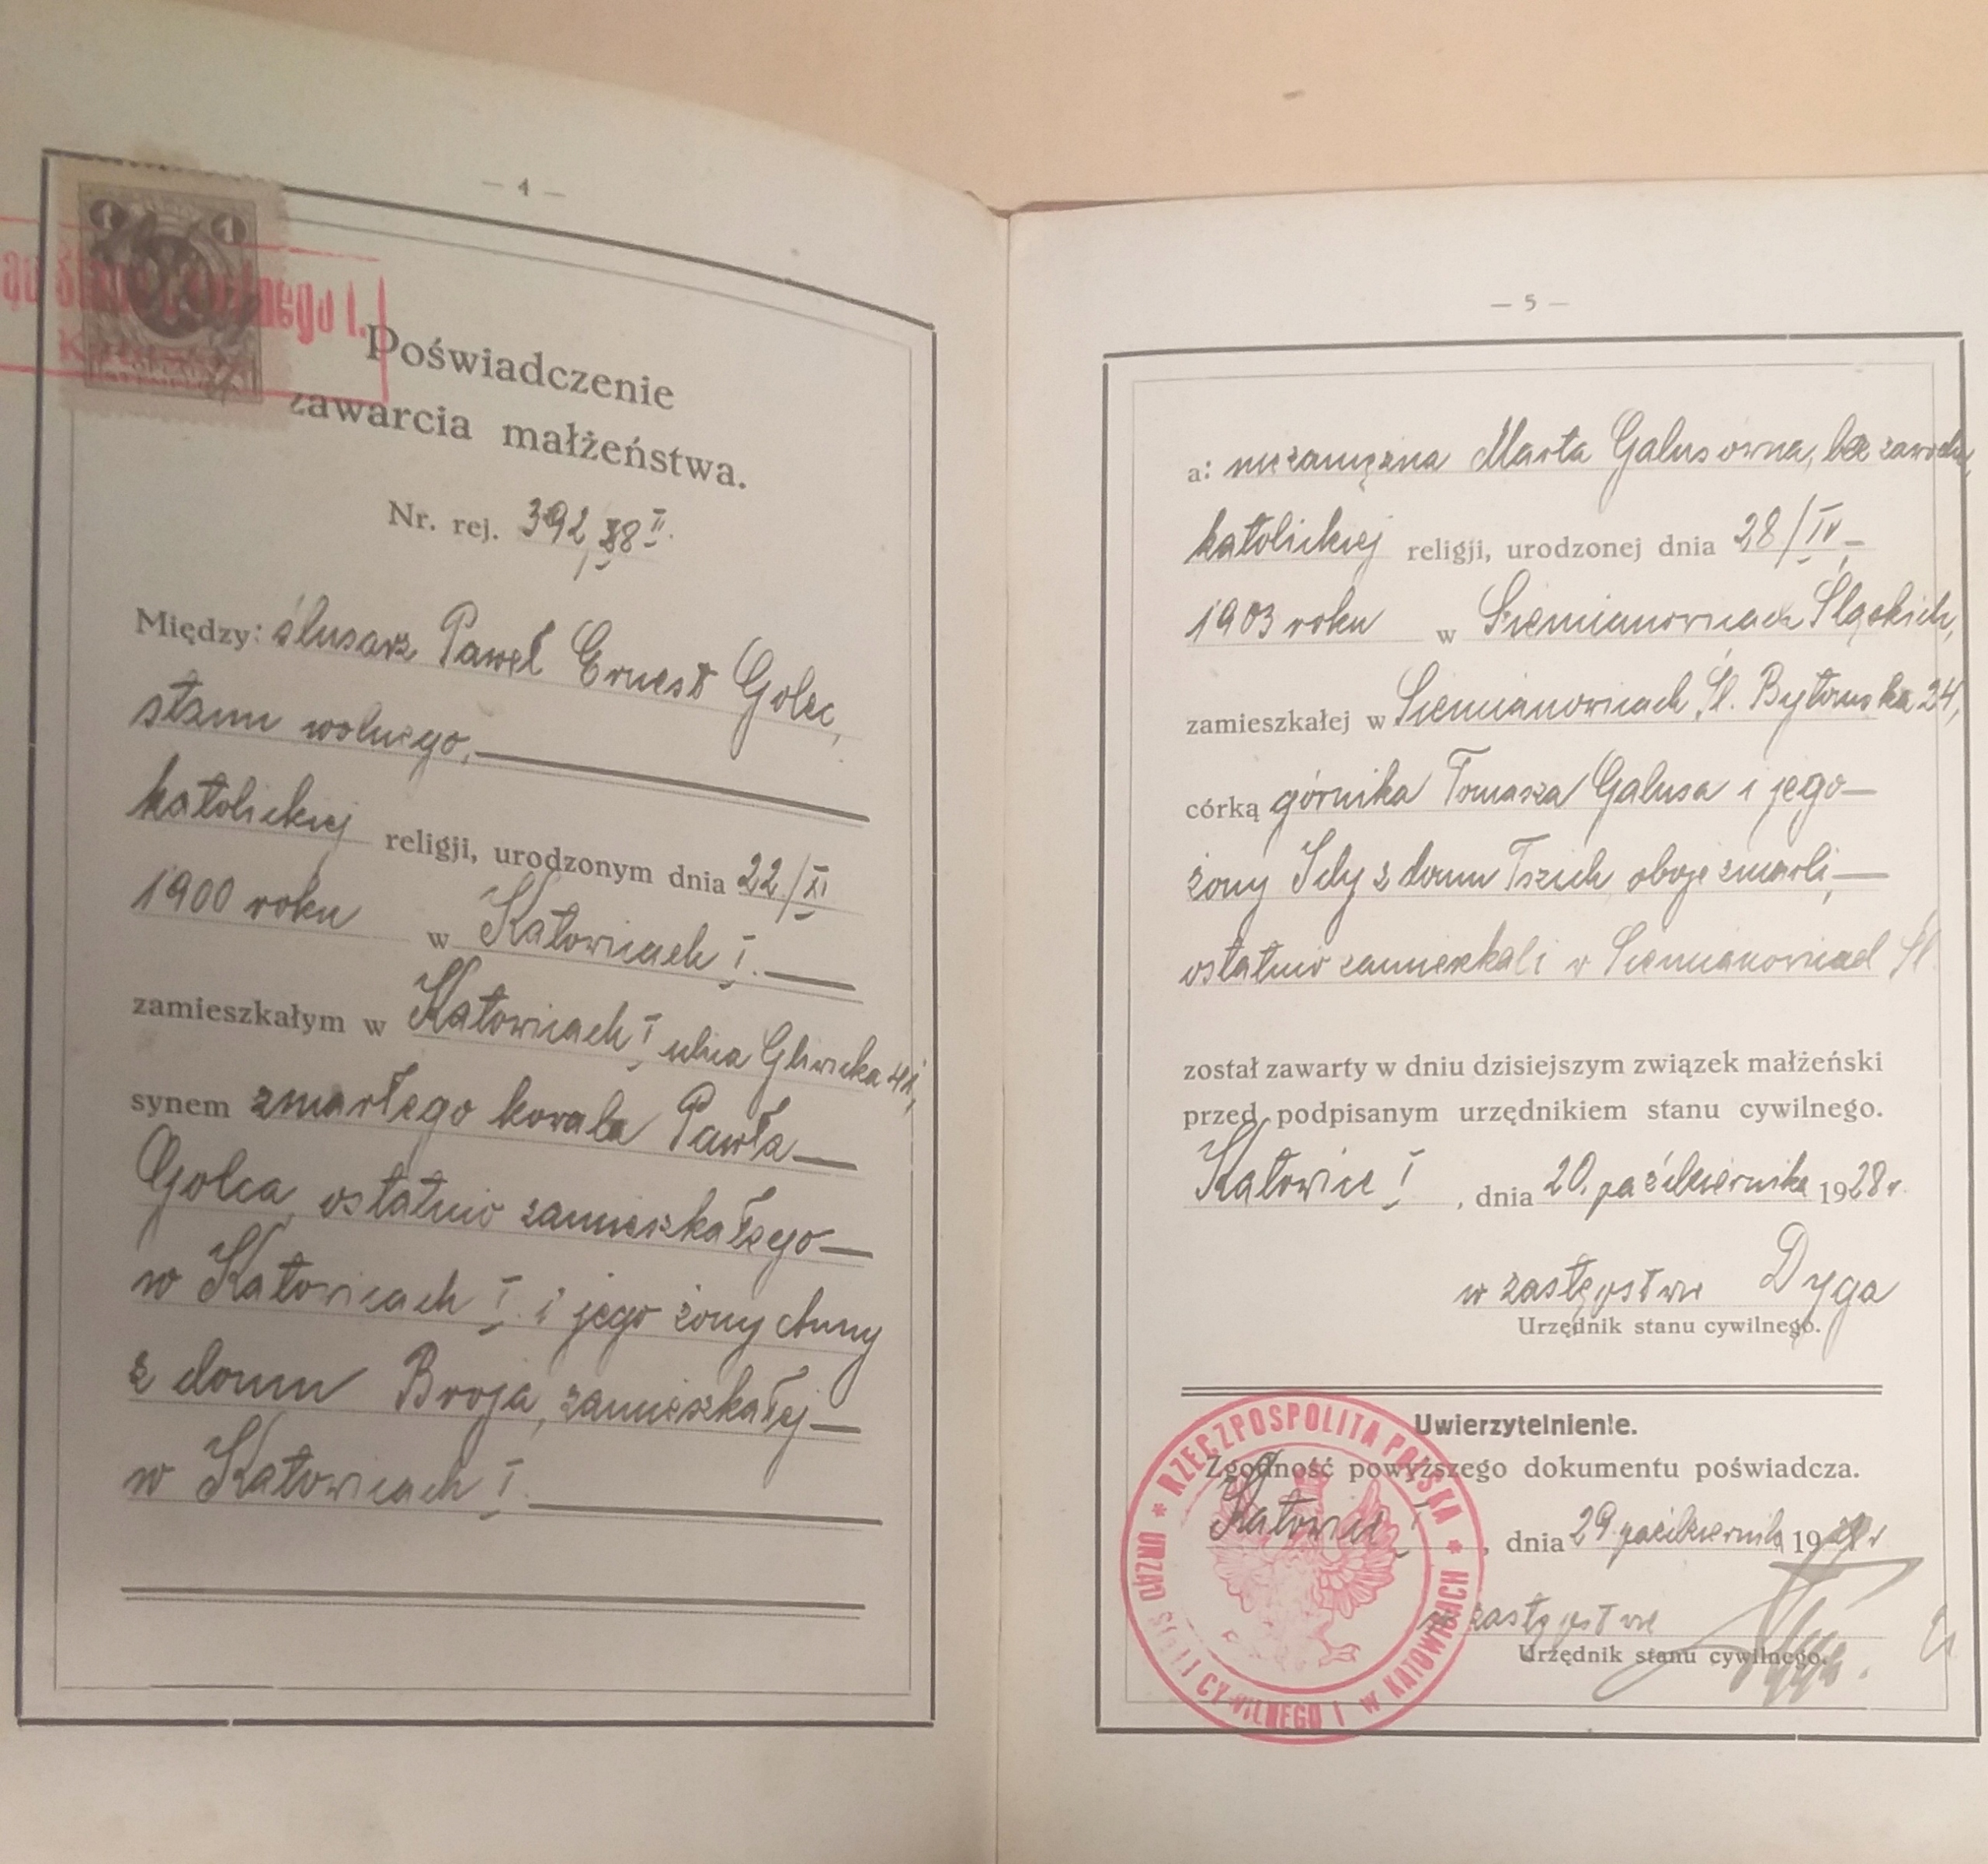 — 4 —
1 1
Stanu Cywilnego I.
Poświadczenie
zawarcia małżeństwa.
Nr. rej. 392, 28 II.
Między: ślusarz Paweł Ernest Golec,
stanu wolnego,
katolickiej religji, urodzonym dnia 22/XI
1900 roku w Katowicach I.
zamieszkałym w Katowicach I ulica Gliwicka 41,
synem zmarłego kowala Pawła
Golca, ostatnio zamieszkałego
w Katowicach I. i jego żony Anny
z domu Broja, zamieszkałej
w Katowicach I.
— 5 —
a: niezamężna Marta Galusówna, bez zawodu,
katolickiej religji, urodzonej dnia 28/IV
1903 roku w Siemianowicach Śląskich,
zamieszkałej w Siemianowicach Śl. Bytomska 24,
córką górnika Tomasza Galusa i jego
żony Idy z domu oboje zmarli,
ostatnio zamieszkali w Siemianowicach Śl.
został zawarty w dniu dzisiejszym związek małżeński
przed podpisanym urzędnikiem stanu cywilnego.
Katowice I, dnia 20. października 1928 r.
w zastępstwie Dyga
Urzędnik stanu cywilnego.
Uwierzytelnienie.
Zgodność powyższego dokumentu poświadcza.
Katowice I, dnia 29. października 1928 r
w zastępstwie
Urzędnik stanu cywilnego.
* RZECZPOSPOLITA POLSKA *
URZĄD STANU CYWILNEGO I W KATOWICACH